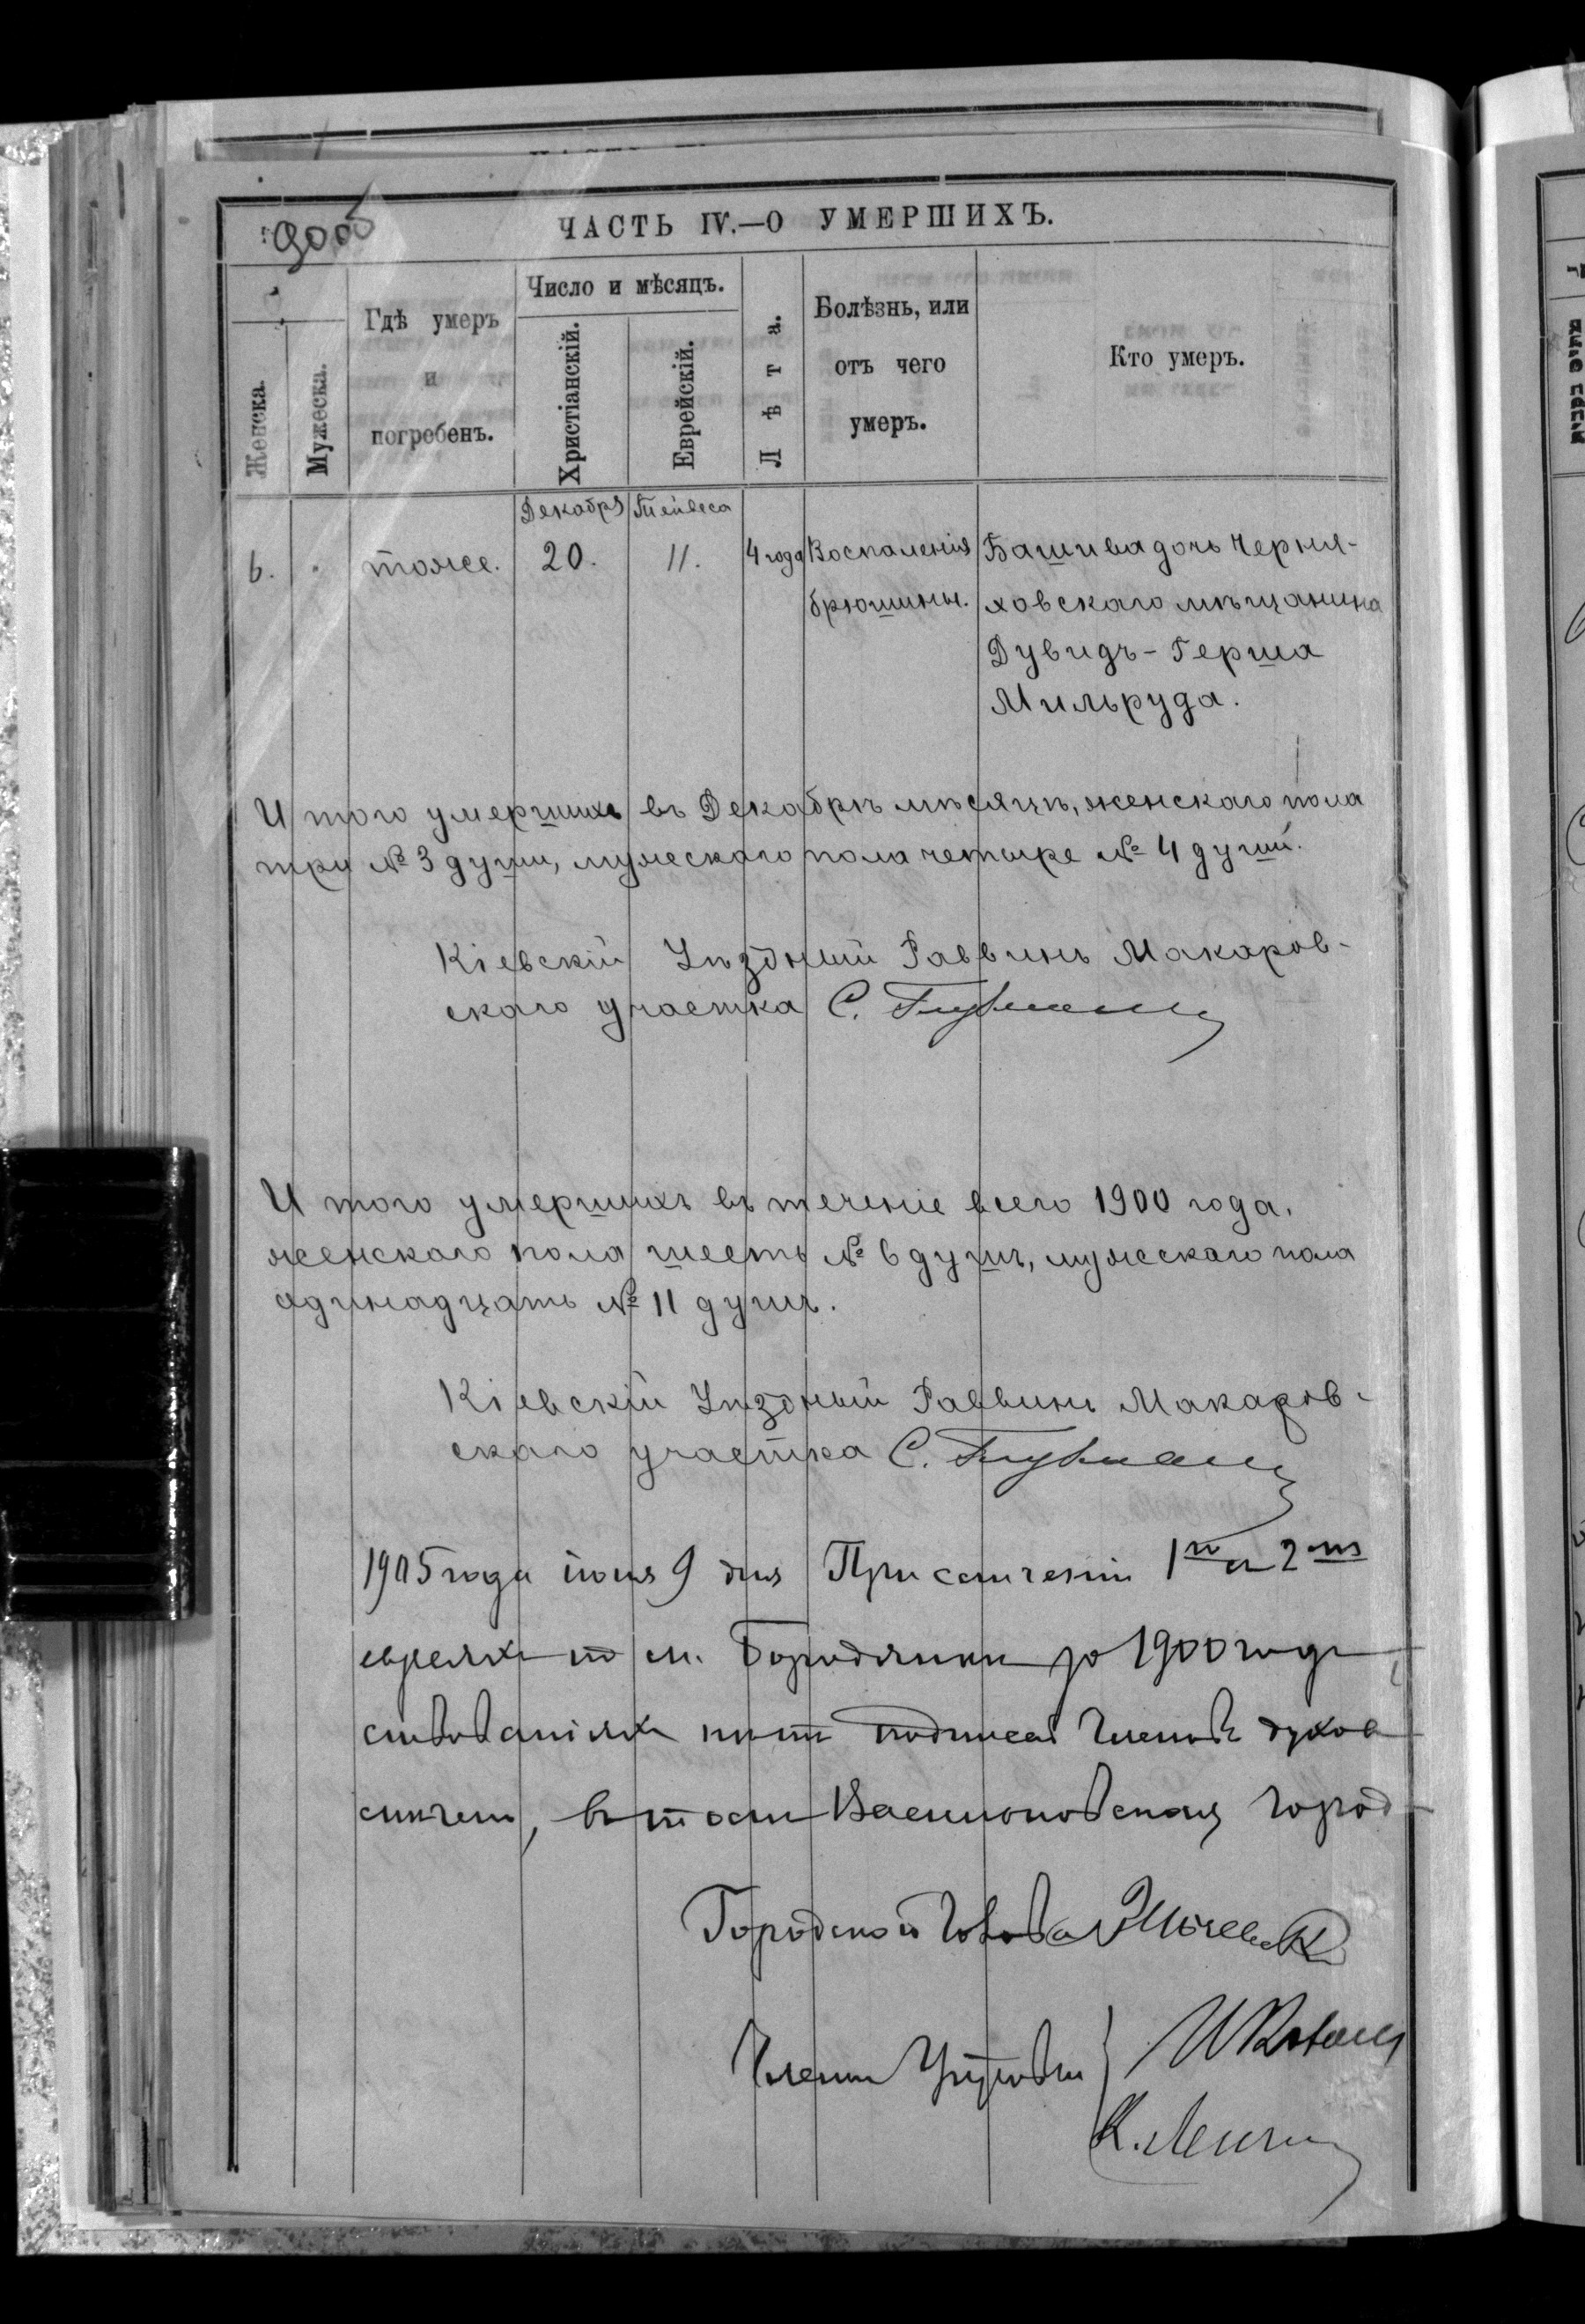 900об
ЧАСТЬ IV.—О УМЕРШИХЪ.
Женска.
Мужеска.
Гдѣ умеръ
и
погребенъ.
Число и мѣсяцъ.
Христіанскій.
Еврейскій.
Лѣта.
Болѣзнь, или
отъ чего
умеръ.
Кто умеръ.
Декабря Тейвеса
6. тоже. 20. 11. 4 года Воспаленія Башива дочь Черня-
брюшины. ховскаго мѣщанина
Дувидъ-Герша
Мильруда.
И того умершихъ въ Декабрѣ мѣсяцѣ, женскаго пола
три № 3 души, мужескаго пола четыре № 4 душй.
Кіевскій Уѣздный Раввинъ Макаров-
скаго участка С.
И того умершихъ въ теченіе всего 1900 года.
женскаго пола шесть № 6 душъ, мужескаго пола
одинадцать № 11 душъ.
Кіевскій Уѣздный Раввинъ Макаров-
скаго участка С.
1905 года іюня 9 дня При сличеніи 1го и 2го
евреяхъ по м. Бородянки за 1900 годъ
подписей Членовъ духов
сличены, въ томъ Васильковская Город
Городской Голова
Члены Управы
К.